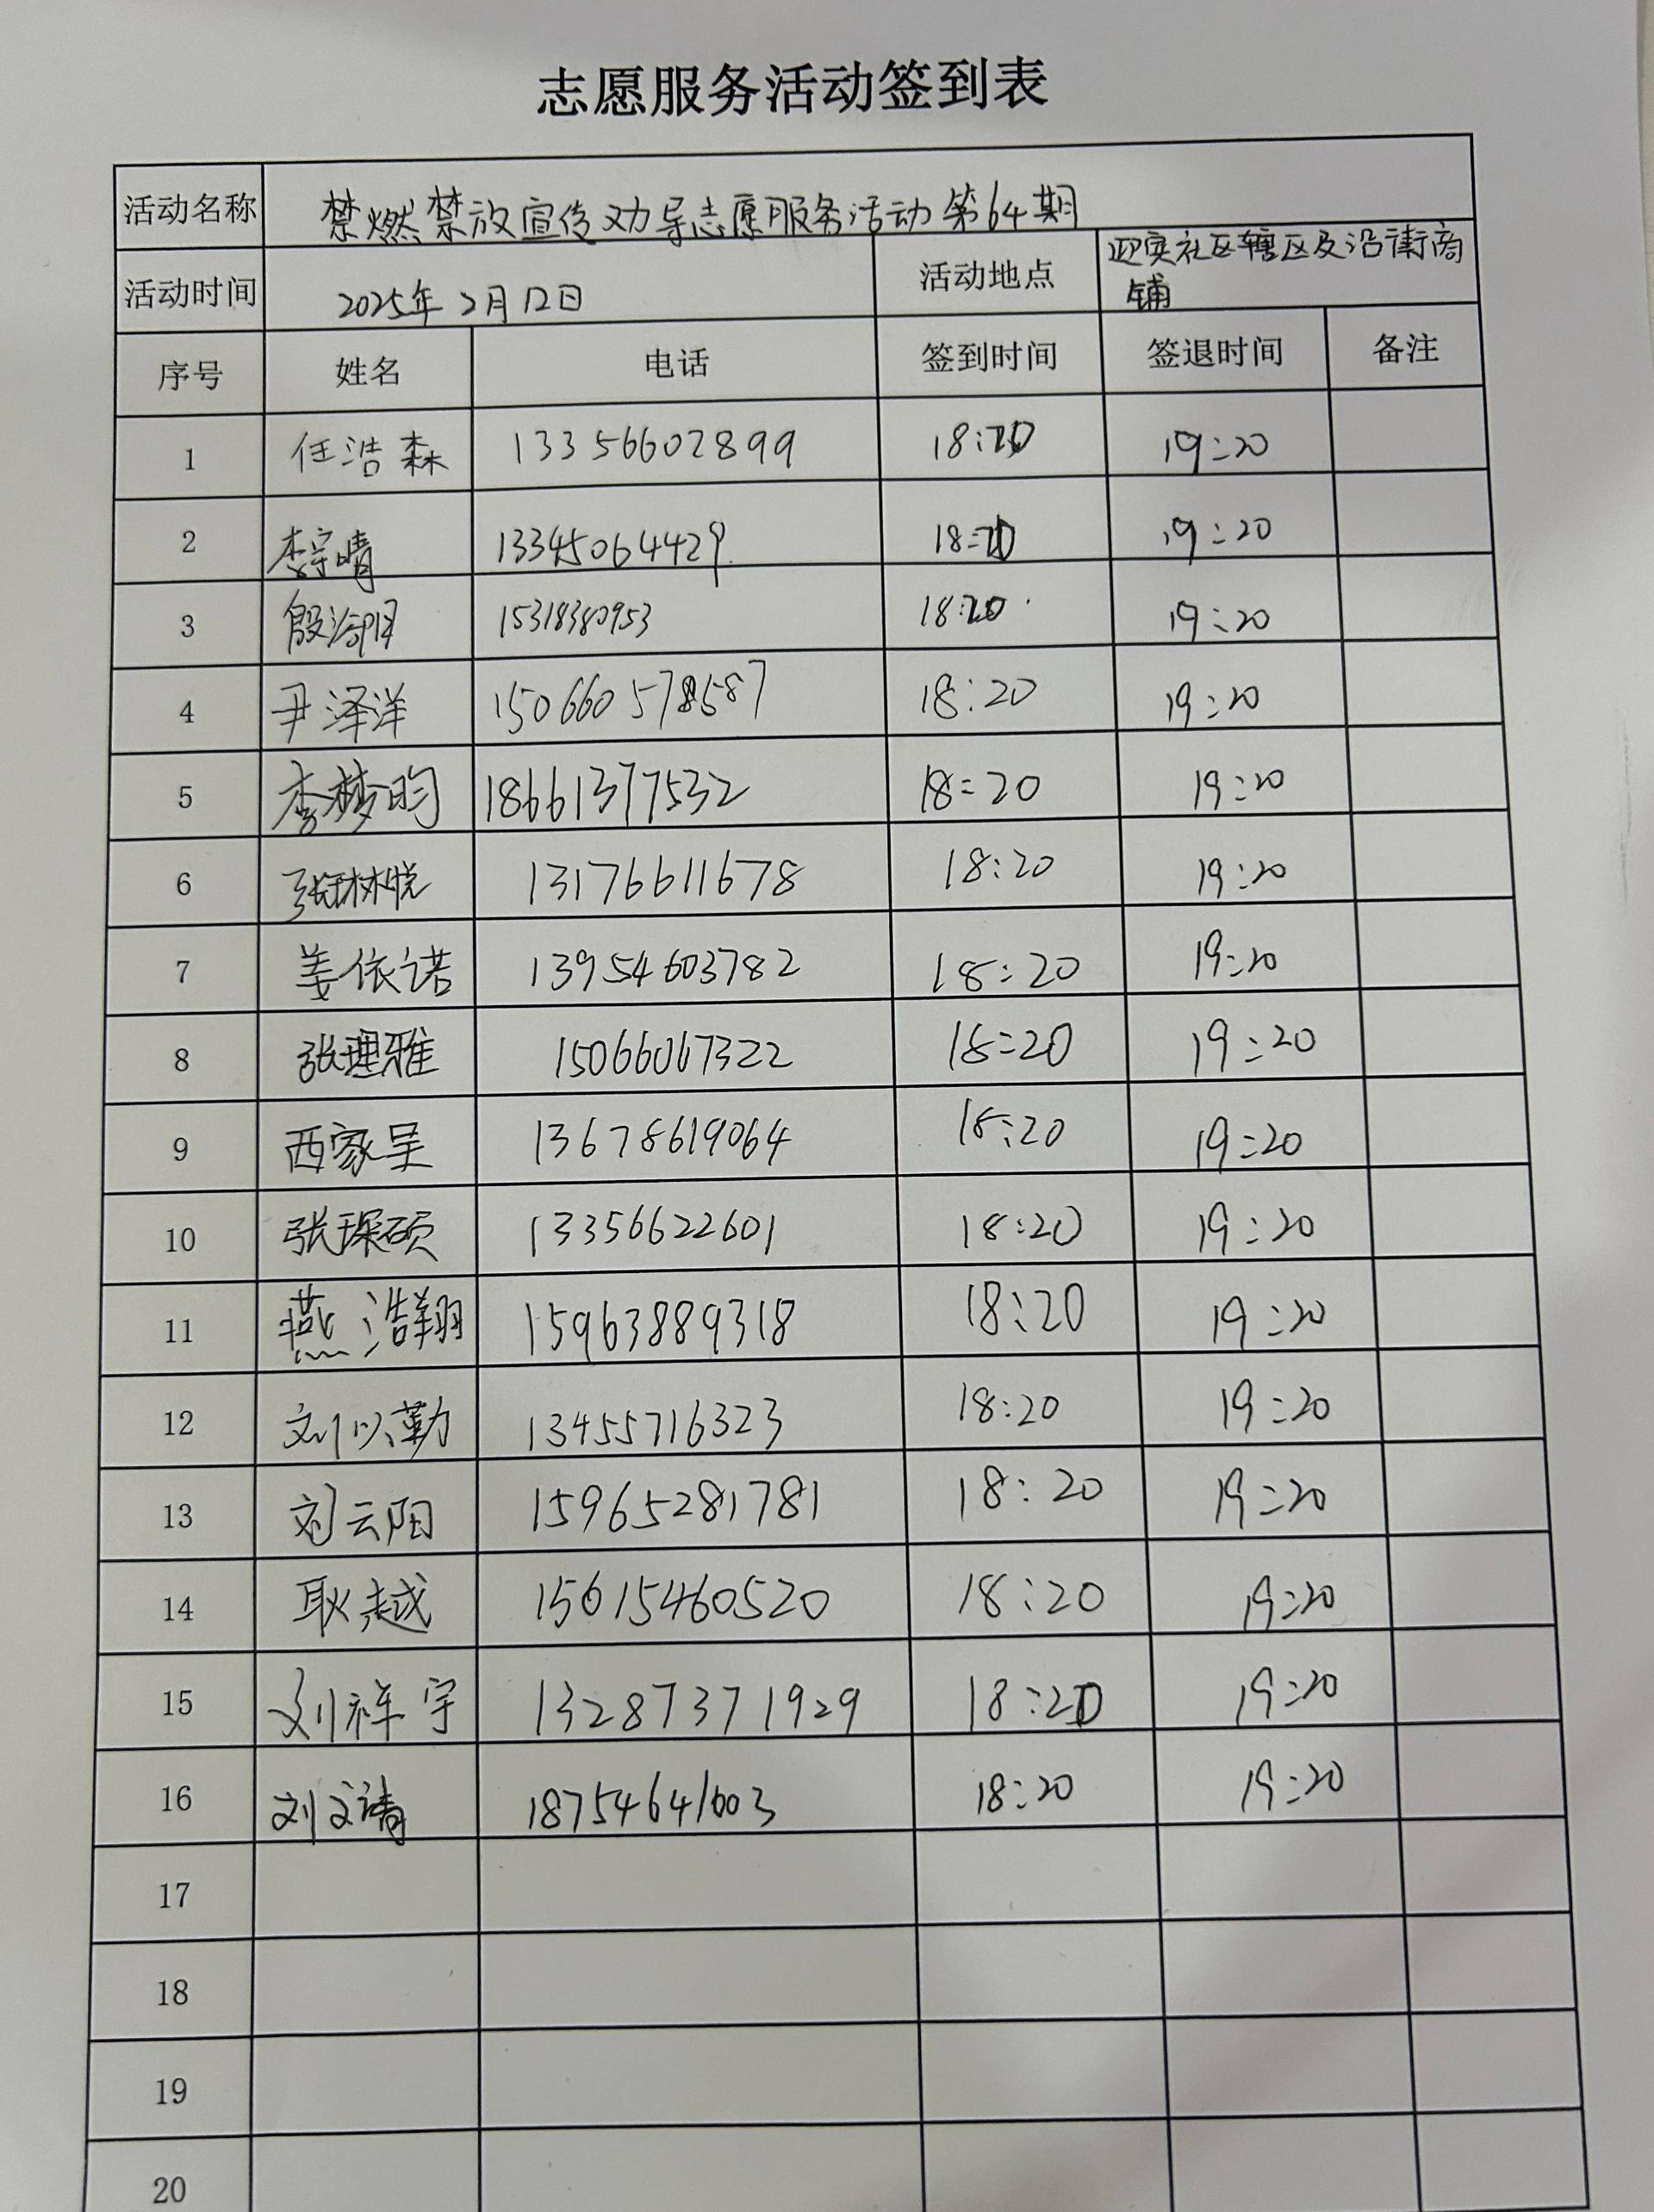 志愿服务活动签到表
活动名称 禁燃禁放宣传劝导志愿服务活动第64期
活动时间 2025年2月12日 活动地点 迎宾社区辖区及沿街商
铺
序号 姓名 电话 签到时间 签退时间 备注
1 任浩森 13356602899 18:20 19:20
2 李宗晴 13345064429 18:20 19:20
3 殷 15318380953 18:20 19:20
4 尹泽洋 18:20 19:20
5 李梦昀 18661377532 18:20 19:20
6 张林悦 13176611678 18:20 19:20
7 姜依诺 13954603782 18:20 19:20
8 张理雅 15066067322 18:20 19:20
9 西家呈 13678619064 18:20 19:20
10 张琛硕 13356622601 18:20 19:20
11 燕浩翔 15963889318 18:20 19:20
12 刘以勤 13455716323 18:20 19:20
13 刘云阳 15965281781 18:20 19:20
14 耿越 15615460520 18:20 19:20
15 刘祥宇 13287371929 18:20 19:20
16 刘文清 18754641603 18:20 19:20
17
18
19
20